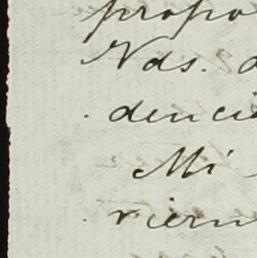 propo
Nds. d
dencia
Mi
viern